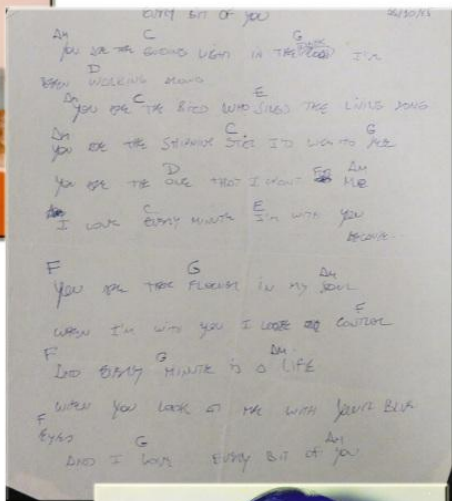 EVERY BIT OF YOU
Am C G
YOU ARE THE GUIDING LIGHT IN THE I'M
D
BEEN WORKING ALONG
Am C E
YOU ARE THE BIRD WHO SINGS THE LIVING SONG
Am C G
YOU ARE THE SHINNING STAR I'D LIKE TO
D Am
YOU ARE THE ONE THAT I WANT ME
C E
I LOVE EVERY MINUTE I'M WITH YOU
BECAUSE...
F G Am
YOU ARE THE FLOWER IN MY SOUL
E
WHEN I'M WITH YOU I LOOSE CONTROL
F G Am
AND EVERY MINUTE IS A LIFE
WHEN YOU LOOK AT ME WITH BLUE
F
EYES
G Am
AND I LOVE EVERY BIT OF YOU